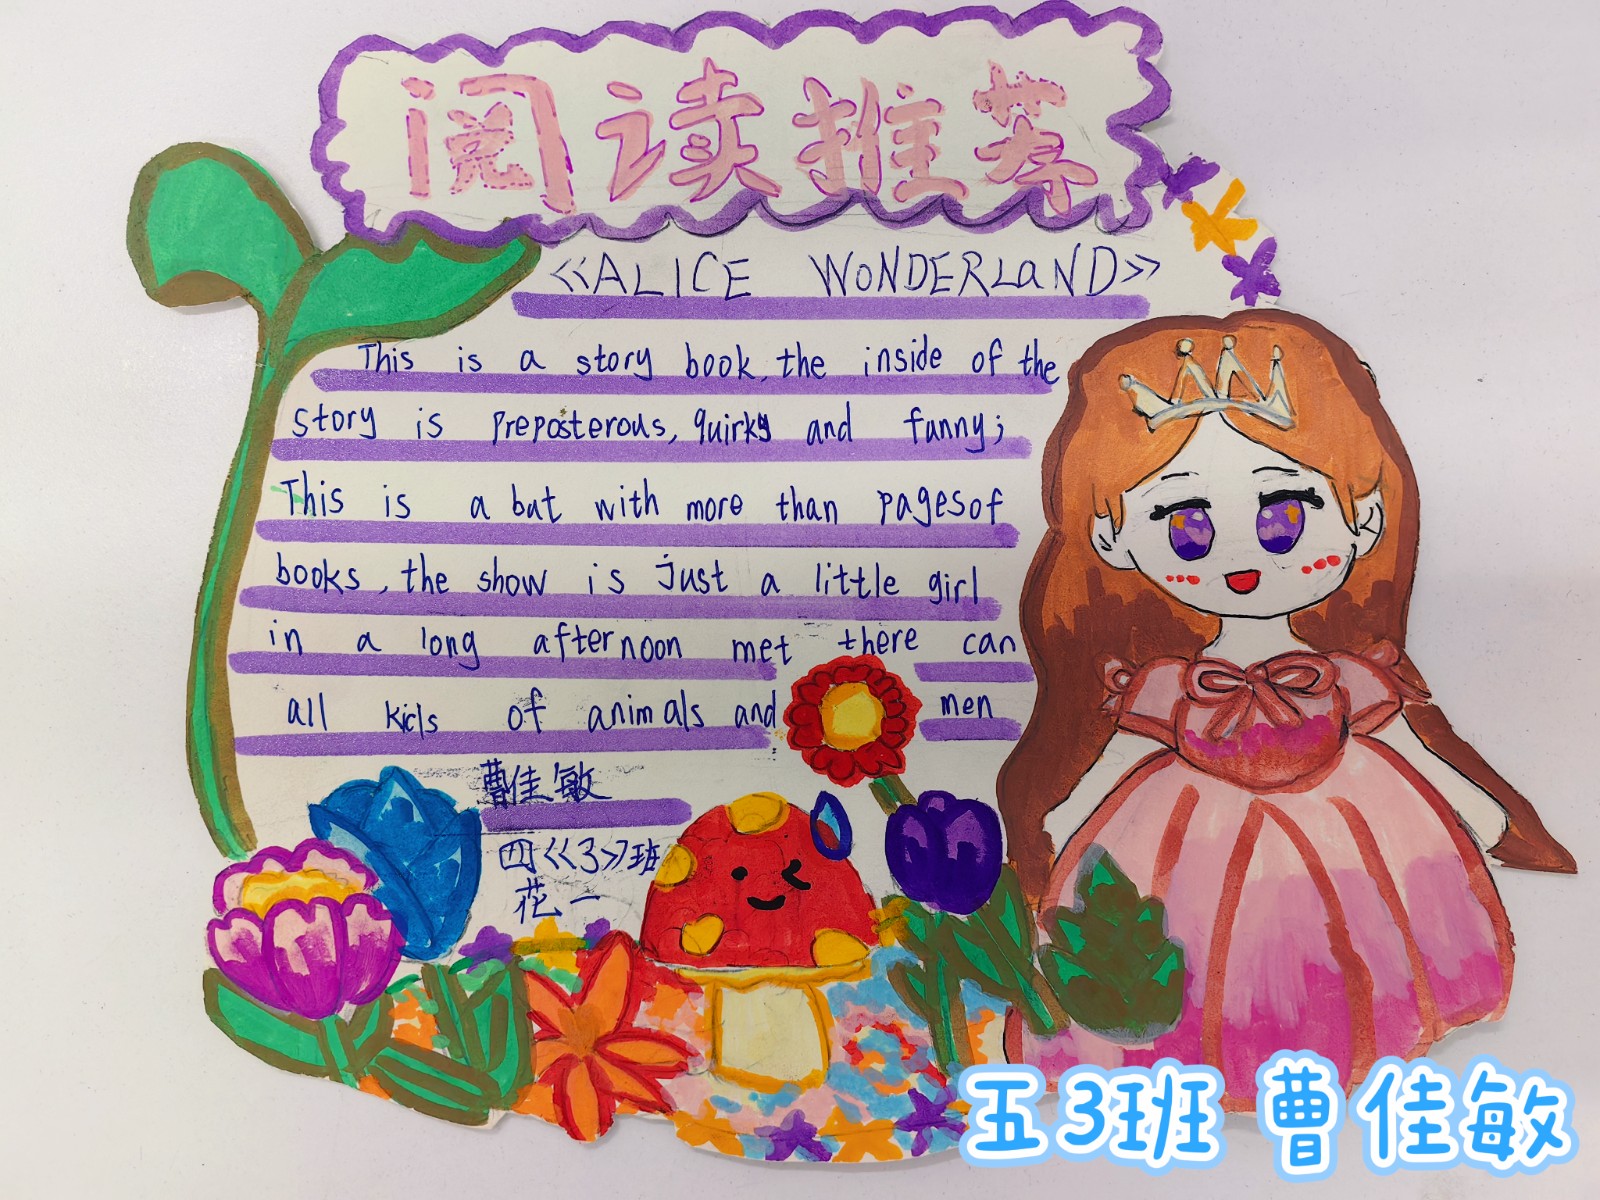 阅读推荐
《ALICE WONDERLaND》
This is a story book, the inside of the
story is Preposterous, quirky and fanny;
This is a but with more than pagesof
books, the show is just a little girl
in a long afternoon met there can
all kicls of animals and men
曹佳敏
四《3》班
花一
五3班 曹佳敏